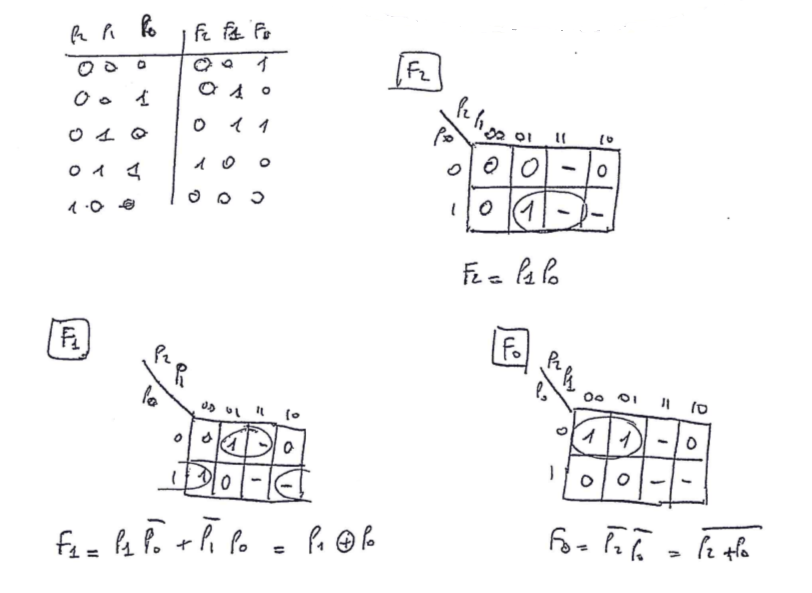 P₂ P₁ P₀ | F₂ F₁ F₀
0 0 0 | 0 0 1
0 0 1 | 0 1 0
0 1 0 | 0 1 1
0 1 1 | 1 0 0
1 0 0 | 0 0 0
F₂
P₂ P₁
P₀ 00 01 11 10
0 0 0 - 0
1 0 1 - -
F₂ = P₁ P₀
F₁
P₂ P₁
P₀ 00 01 11 10
0 0 1 - 0
1 1 0 - -
F₁ = P₁ P̅₀ + P̅₁ P₀ = P₁ ⊕ P₀
F₀
P₂ P₁
P₀ 00 01 11 10
0 1 1 - 0
1 0 0 - -
F₀ = P̅₂ P̅₀ = \overline{P₂ + P₀}